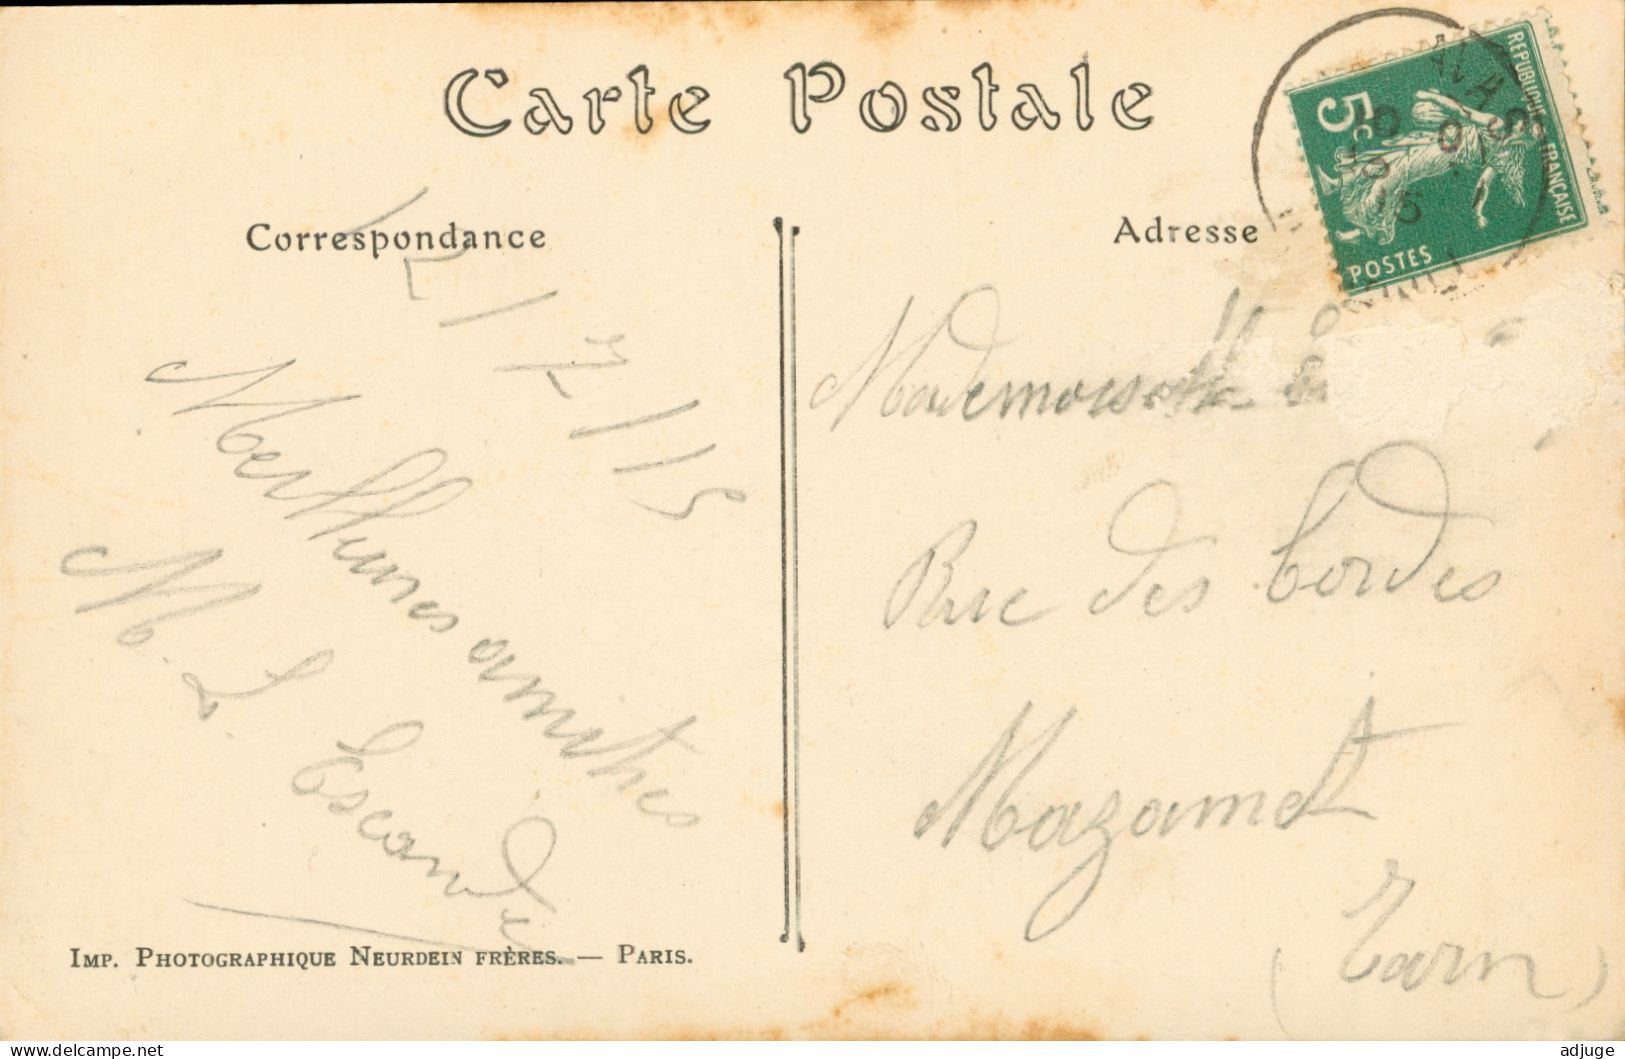 Carte Postale
Correspondance
Adresse
REPUBLIQUE FRANÇAISE
5c
POSTES
12/7/15
Meilleures amities
M. L. Escande
Mademoiselle
Rue des Cordes
Mazamet
(Tarn)
IMP. PHOTOGRAPHIQUE NEURDEIN FRÈRES. — PARIS.
delcampe.net
adjuge